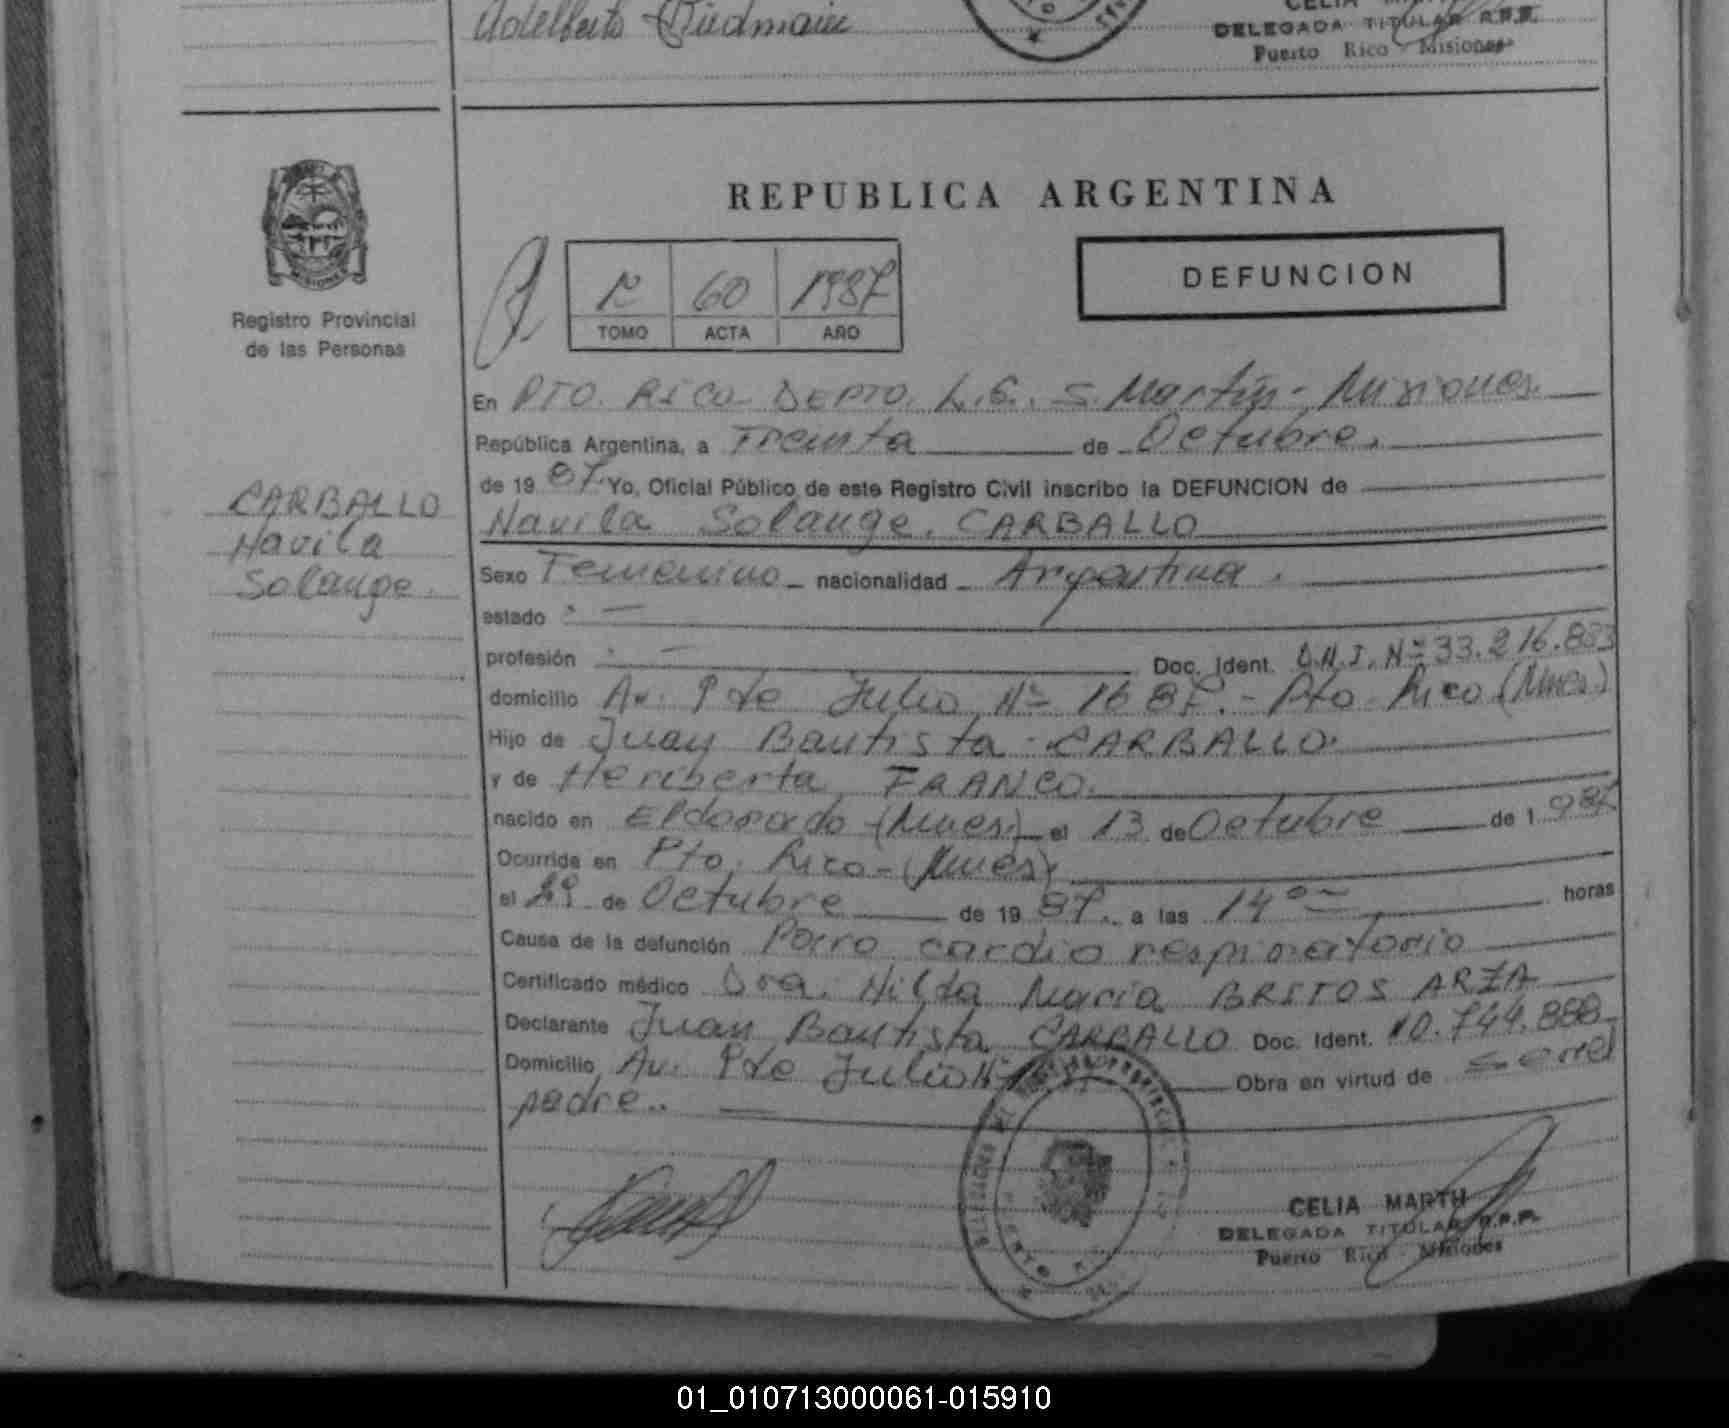 Adelberto Riedmaier
DELEGADA TITULAR R.P.P.
Puerto Rico - Misiones
REPUBLICA ARGENTINA
DEFUNCION
1º 60 1987
TOMO ACTA AÑO
Registro Provincial
de las Personas
CARBALLO
Navila
Solange.
En PTO. RICO - DEPTO. L.G. S. Martín - Misiones.
República Argentina, a Treinta de Octubre.
de 19 87. Yo, Oficial Público de este Registro Civil inscribo la DEFUNCION de
Navila Solange. CARBALLO
Sexo Femenino - nacionalidad - Argentina.
estado . —
profesión . — Doc. Ident. D.N.I. Nº 33.216.883
domicilio Av. 9 de Julio Nº 1687. - Pto - Rico (Mnes.)
Hijo de Juan Bautista - CARBALLO.
y de Heriberta FRANCO.
nacido en Eldorado (Mnes.) el 13 de Octubre de 1.987
Ocurrida en Pto. Rico - (Mnes)
el 29 de Octubre de 19 87. a las 14 00 horas
Causa de la defunción Paro cardio respiratorio
Certificado médico Dra. Nilda María BRITOS ARZA
Declarante Juan Bautista CARBALLO Doc. Ident. 10.744.888-
Domicilio Av. 9 de Julio Nº Obra en virtud de ser el
padre. . —
CELIA MARTH
DELEGADA TITULAR R.P.P.
Puerto Rico - Misiones
01_010713000061-015910